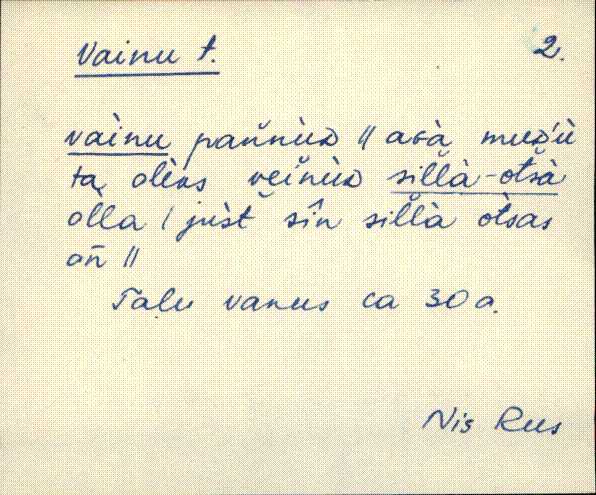 Vainu t. 2.
vàìnu pan̆nìuᴅ || aɢà muᴅ'ù
ta̭ olèᴋs veĭnìuᴅ sil̆là-ot̆sà
ol̆la / jùst sîn sil̆là òtsas
on̆ ||
Talu vanus ca 30 a.
Nis Rus